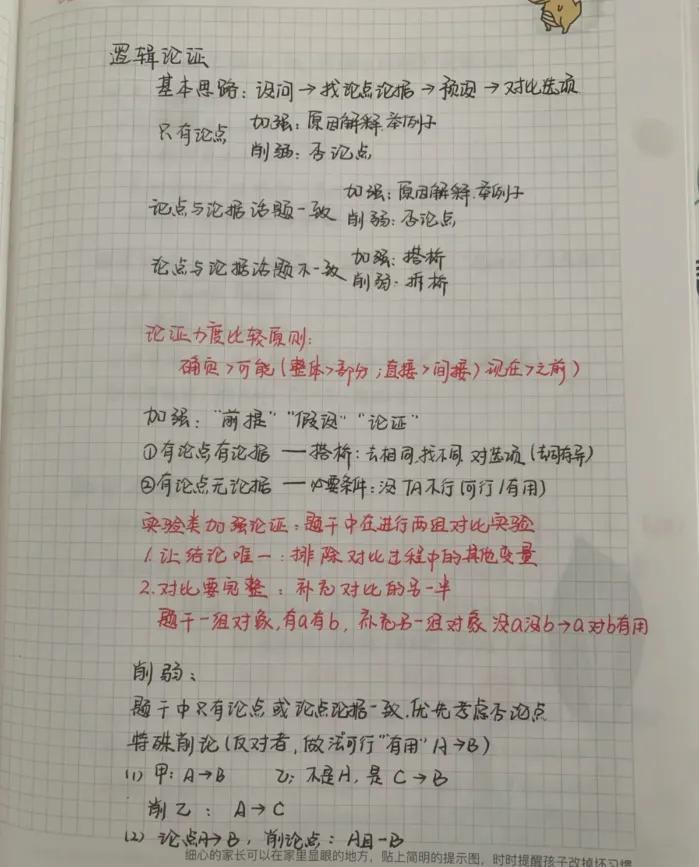 逻辑论证
基本思路：设问→找论点论据→预设→对比选项
只有论点 加强：原因解释 举例子
削弱：否论点
论点与论据话题一致 加强：原因解释.举例子
削弱：否论点
论点与论据话题不一致 加强：搭桥
削弱：拆桥
论证力度比较原则：
确实>可能(整体>部分；直接>间接) 现在>之前)
加强：“前提”“假设”“论证”
①有论点有论据 — 搭桥：去相同,找不同 对选项(去同存异)
②有论点无论据 — 必要条件：没TA不行(可行/有用)
实验类加强论证：题干中在进行两组对比实验
1.让结论唯一：排除对比过程中的其他变量
2.对比要完整：补充对比的另一半
题干一组对象,有a有b，补充另一组对象 没a没b→a对b有用
削弱：
题干中只有论点或论点论据一致,优先考虑否论点
特殊削论(反对者，做法可行“有用”A→B)
(1) 甲：A→B 乙：不是A，是C→B
削乙：A→C
(2) 论点A→B，削论点：A且-B
细心的家长可以在家里显眼的地方，贴上简明的提示图，时时提醒孩子改掉坏习惯